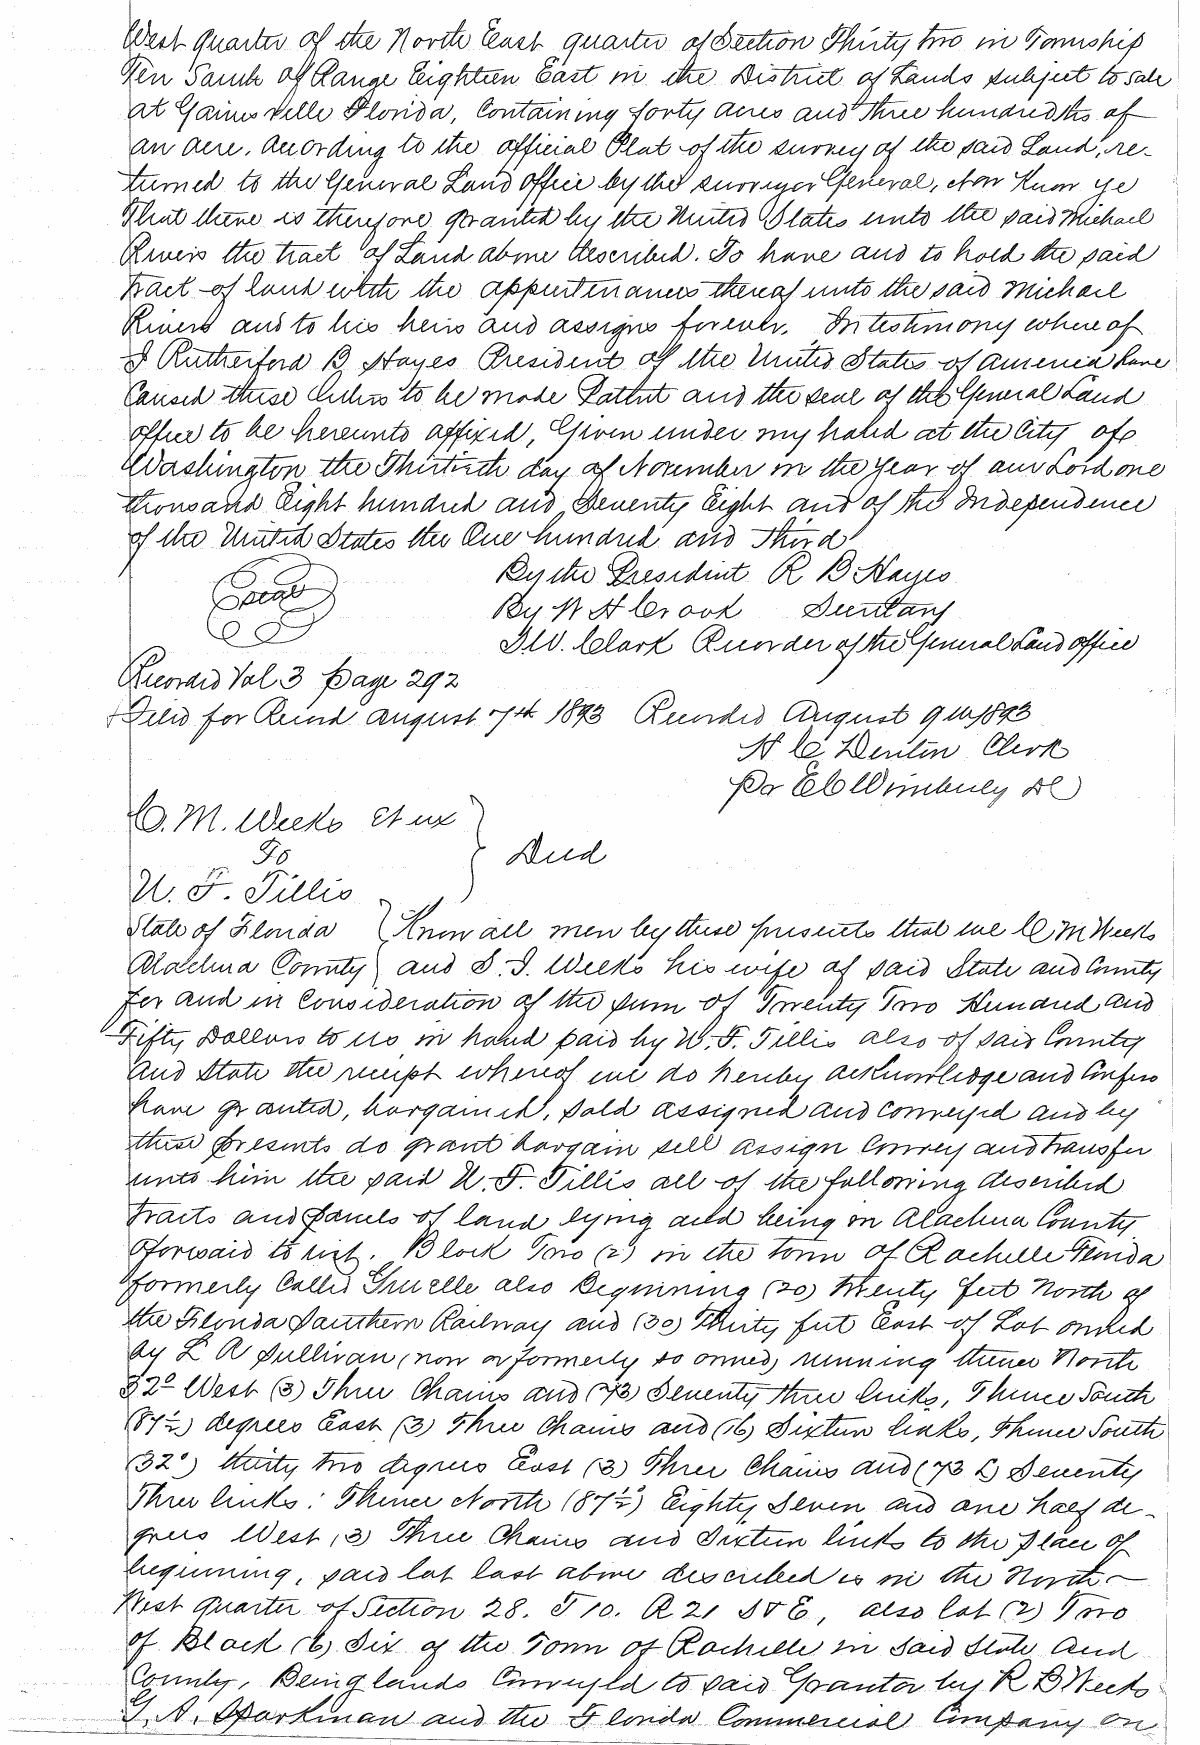 West quarter of the North East quarter of Section Thirty two in Township
Ten South of Range Eighteen East in the District of Lands subject to sale
at Gainesville Florida, Containing forty acres and three hundredths of
an acre. according to the official Plat of the survey of the said Land, re-
turned to the General Land office by the surveyor General, Now Know ye
That there is therefore granted by the United States unto the said Michael
Rivers the tract of Land above described. To have and to hold the said
tract of land with the appurtenances thereof unto the said Michael
Rivers and to his heirs and assigns forever. In testimony where of
I Rutherford B Hayes President of the United States of America have
caused these letters to be made Patent and the seal of the General Land
office to be hereunto affixed, Given under my hand at the City of
Washington the Thirtieth day of November in the year of our Lord one
thousand Eight hundred and Seventy Eight and of the Independence
of the United States the One hundred and third
Seal
By the President R B Hayes
By W H Crook Secretary
S.W. Clark Recorder of the General Land office
Recorded Vol 3 page 292
Filed for Record august 7th 1893 Recorded August 9th 1893
H C Denton Clerk
Per E C Wimberly DC
C. M. Weeks et ux
To
Deed
U. F. Tillis
State of Florida } Know all men by these presents that we C M Weeks
Alachua County } and S. I. Weeks his wife of said State and County
for and in Consideration of the sum of Twenty Two Hundred and
Fifty Dollars to us in hand paid by U. F. Tillis also of said County
and State the receipt whereof we do hereby acknowledge and Confess
have granted, bargained, sold assigned and conveyed and by
these presents do grant bargain sell assign Convey and transfer
unto him the said U. F. Tillis all of the following described
tracts and parcels of land lying and being in Alachua County
aforesaid to wit. Block Two (2) in the town of Rochelle Florida
formerly Called Gruelle also Beginning (20) twenty feet North of
the Florida Southern Railway and (30) Thirty feet East of Lot owned
by L A Sullivan (now or formerly so owned) running thence North
32° West (3) Three Chains and (73) Seventy three links, Thence South
(87½) degrees East (3) Three Chains and (16) Sixteen links, Thence South
(32°) thirty two degrees East (3) Three Chains and (73 L) Seventy
Three links: Thence North (87½°) Eighty Seven and one half de-
grees West (3) Three Chains and Sixteen links to the place of
beginning, said lot last above described is in the North-
West quarter of Section 28. T 10. R 21 S & E, also lot (2) Two
of Block (6) Six of the Town of Rochelle in said State and
County, Being lands Conveyed to said Grantor by R B Weeks
G. A. Sparkman and the Florida Commercial Company on